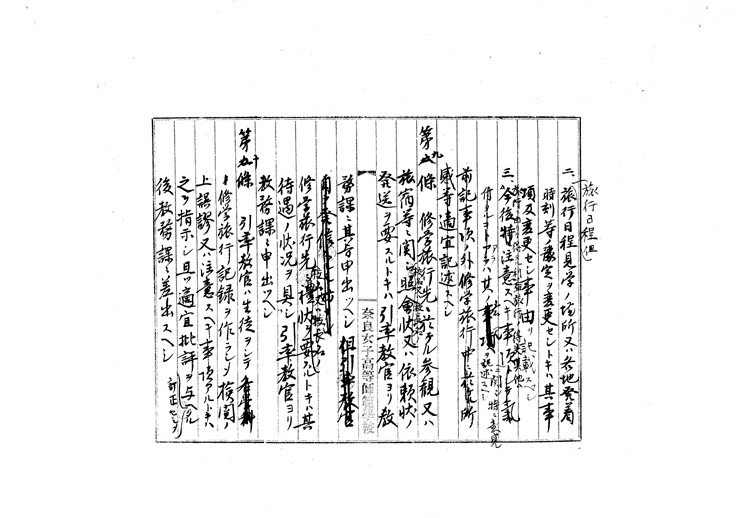 旅行日程(但)
二、旅行日程見学ノ場所又ハ各地発着
時刻等豫定ヲ変更セシトキハ其事
項及変更セシ事由
記載スベシ
三、今後特ニ注意スベキ事項
ニ関シ特ニ意見
アラバ其ノ
ヲ記述スベシ
前記事項ノ外修学旅行中ニ於ケル所
感等適宜記述スベシ
第九條 修学旅行先ニ於ケル参観又ハ
旅宿等ニ関シ照会状又ハ依頼状ノ
発送ヲ要スルトキハ引率教官ヨリ教
務課ニ其旨申出ツベシ
但引率教官
奈良女子高等師範学校
修学旅行先ヘ礼状ヲ要スルトキハ其
待遇ノ状况ヲ具シ引率教官ヨリ
教務課ニ申出ツベシ
第十條 引率教官ハ生徒ヲシテ
修学旅行記録ヲ作ラシメ検閲ノ
上誤謬又ハ注意スベキ事項アルトキハ
之ヲ指示シ且ツ適宜批評ヲ与ヘ
訂正セシメ
後教務課ニ差出スベシ